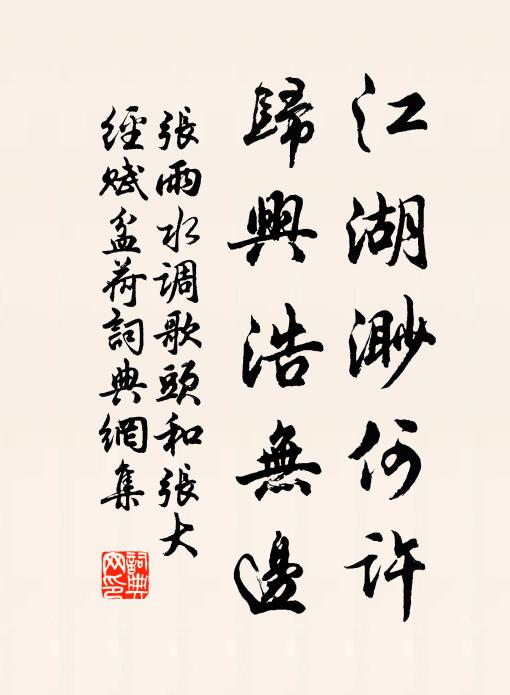 江湖渺何許
歸興浩無邊
張雨水调歌頭和張大
經賦盆荷詞典網集
詞典網印